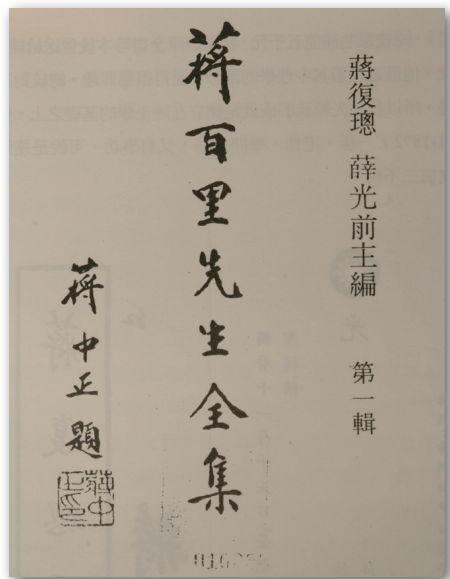 蔣復璁 薛光前主編 第一輯
蔣百里先生全集
蔣中正題
蔣中正印